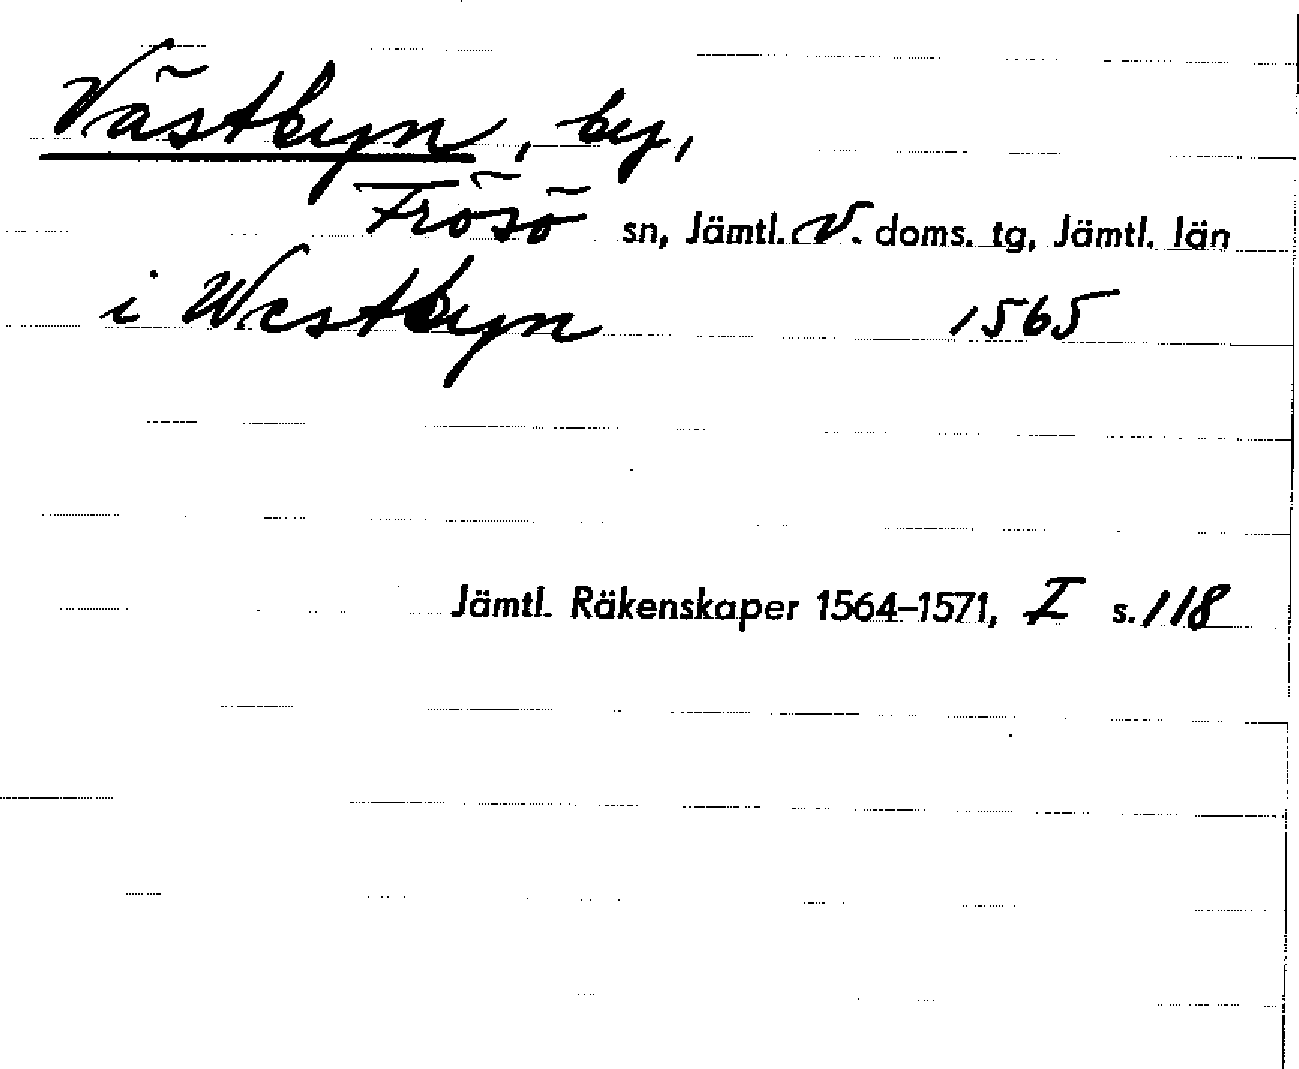 Västbyn, by,
Frösö sn, Jämtl. V. doms. tg, Jämtl. län
i Westbyn 1565
Jämtl. Räkenskaper 1564–1571, I s. 118